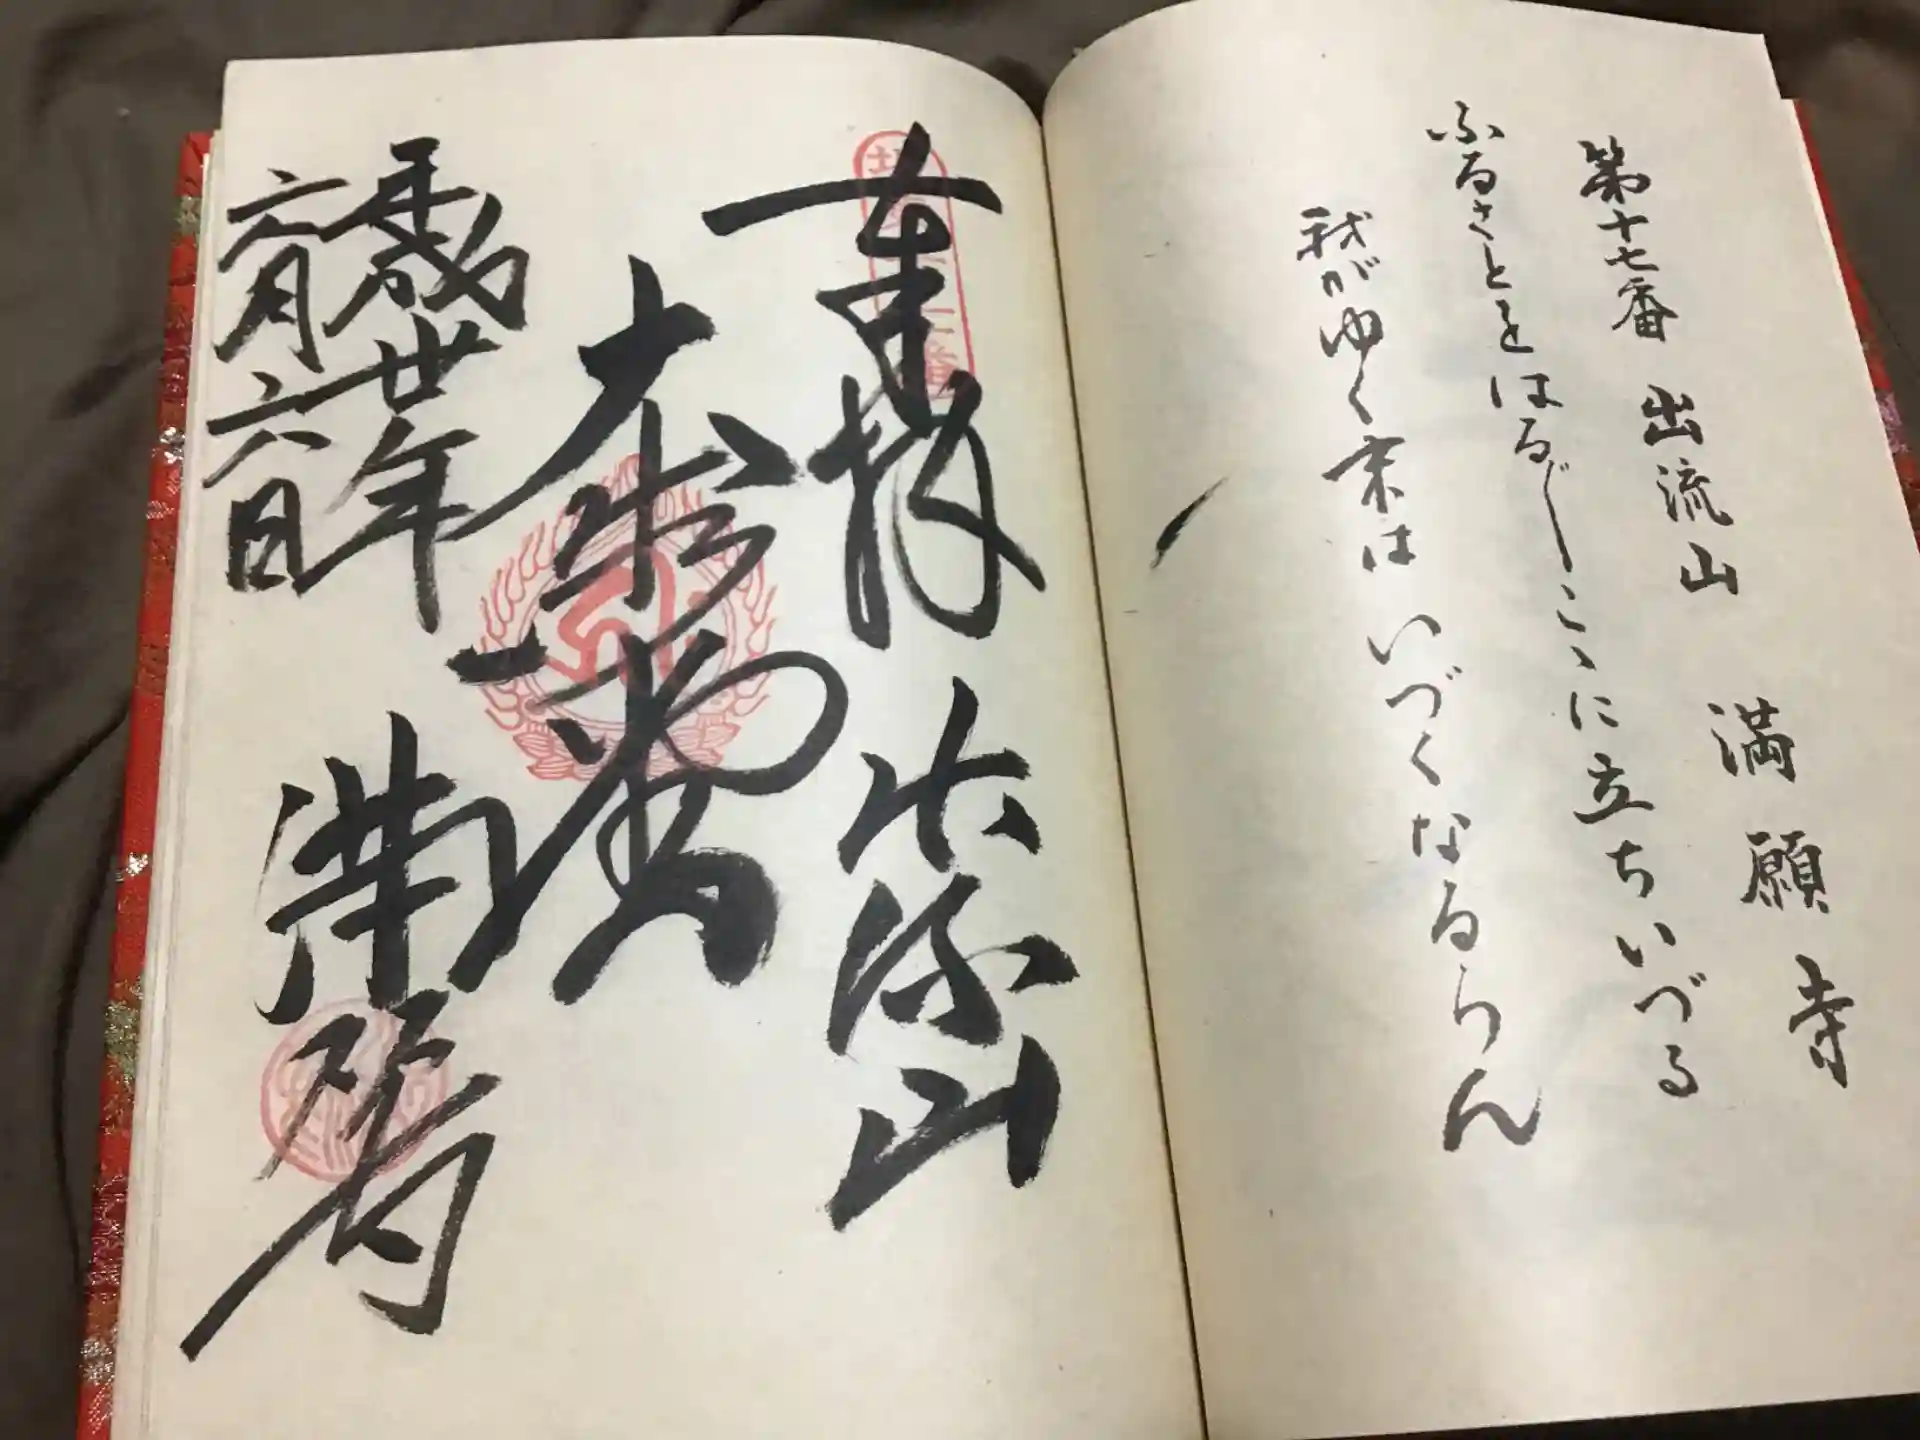 第十七番 出流山 満願寺
ふるさとをはる〴〵こゝに立ちいづる
我がゆく末はいづくなるらん
奉拝 出流山
大悲殿
平成廿年
六月六日
満願寺